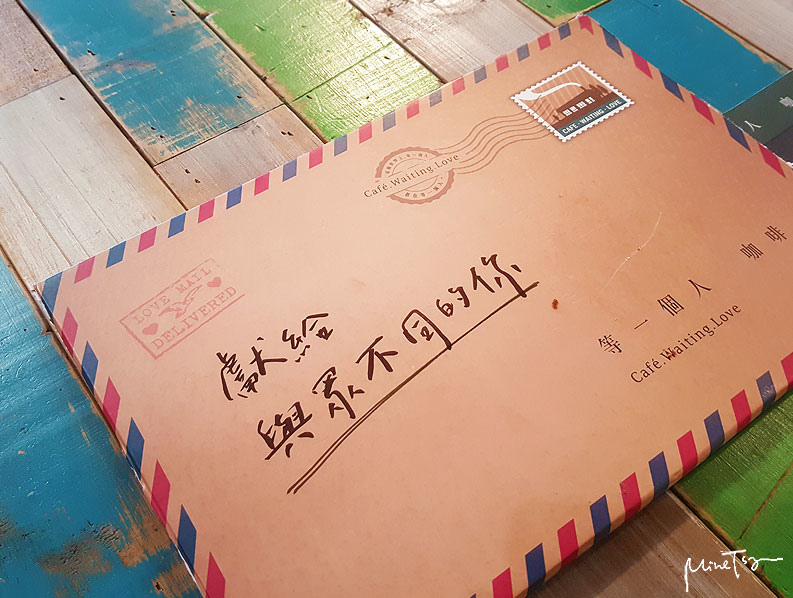 CAFÉ．WAITING．LOVE
Café.Waiting.Love
LOVE MAIL
DELIVERED
獻給
與眾不同的你
等一個人 咖啡
Café.Waiting.Love
人